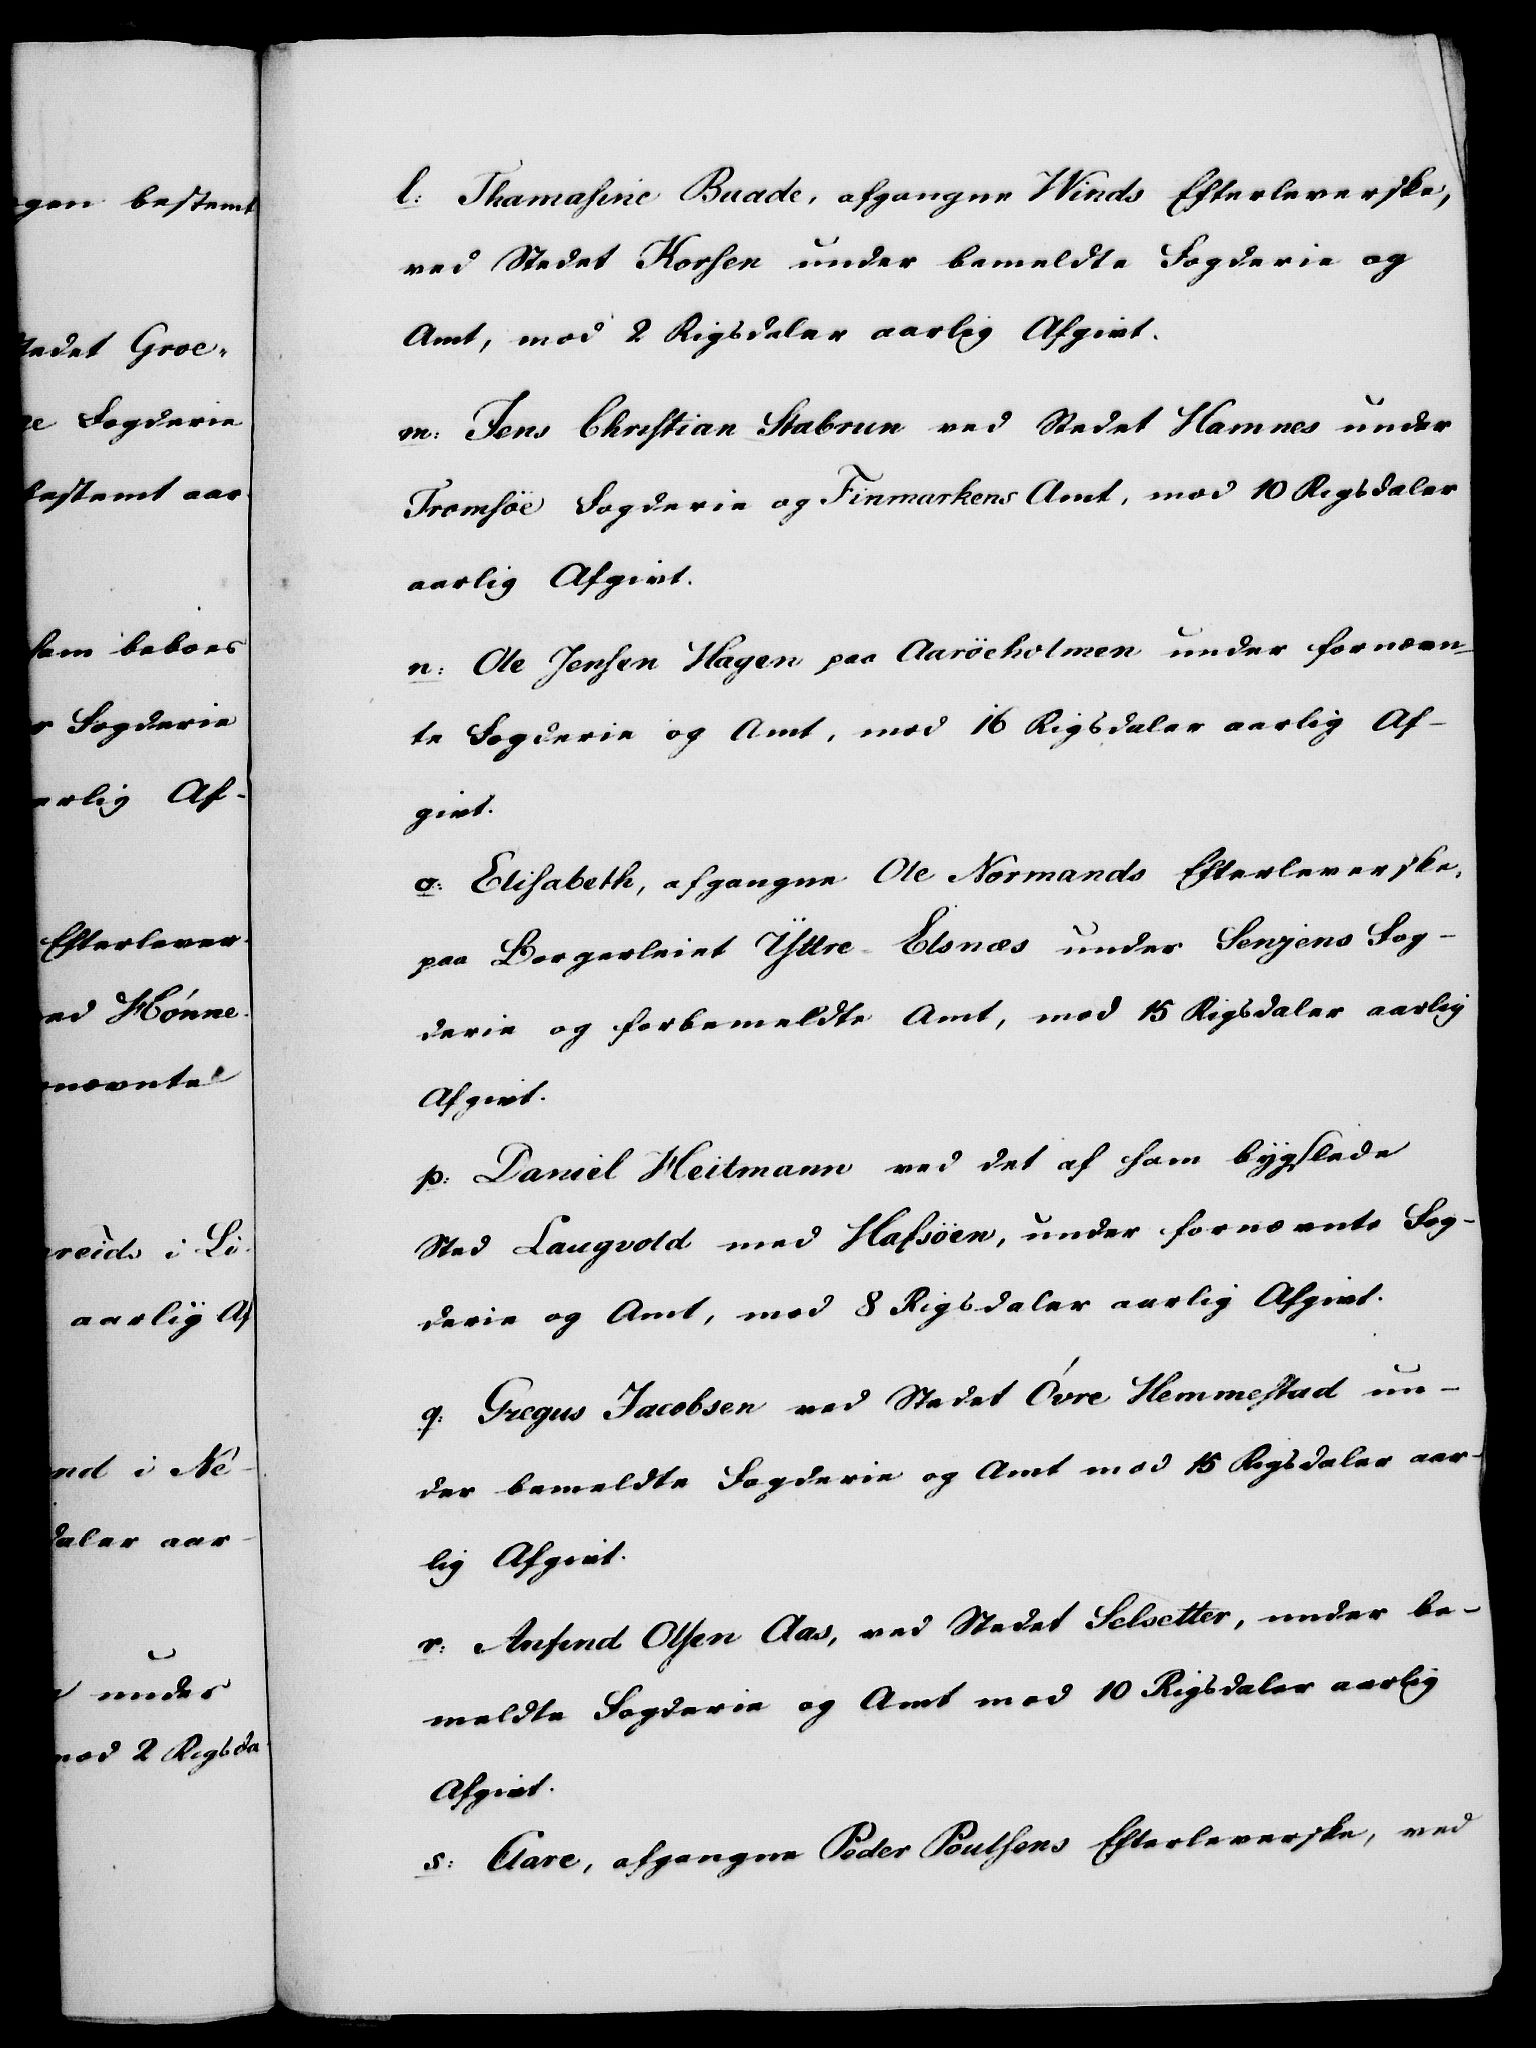 gen bestemt
tedet Groe„
ne Fogderie
bestemt aar-
ham beboes
r Fogderie
arlig Af-
Efterlever-
ed Hónne-
nævnte
reids i Li-
aarlig Af
nd i Ne-
daler aar-
under
mod 2 Rigsda-
l: Thamasine Buade, afgangne Winds Efterleverske,
ved Stedet Korsen under bemeldte Fogderie og
Amt, mod 2 Rigsdaler aarlig Afgivt.
m: Jens Christian Stabrun ved Stedet Hamnes under
Tromsöe Fogderie og Finmarkens Amt, mod 10 Rigsdaler
aarlig Afgivt.
n: Ole Jensen Hagen paa Aaröeholmen under fornævn-
te Fogderie og Amt, mod 16 Rigsdaler aarlig Af-
givt.
o: Elisabeth, afgangne Ole Normands Efterleverske,
paa Borgerleiet Yttre-Elsnæs under Senjens Fog-
derie og forbemeldte Amt, mod 15 Rigsdaler aarlig
Afgivt.
p: Daniel Heitmann ved det af ham bygslede
Sted Laugvold med Hafsöen, under fornævnte Fog-
derie og Amt, mod 8 Rigsdaler aarlig Afgivt.
q: Gregus Jacobsen ved Stedet Óvre Hemmestad un-
der bemeldte Fogderie og Amt mod 15 Rigsdaler aar-
lig Afgivt.
r: Anfind Olsen Aas, ved Stedet Selsetter, under be-
meldte Fogderie og Amt mod 10 Rigsdaler aarlig
Afgivt.
s: Clare, afgangne Peder Poulsens Efterleverske, ved